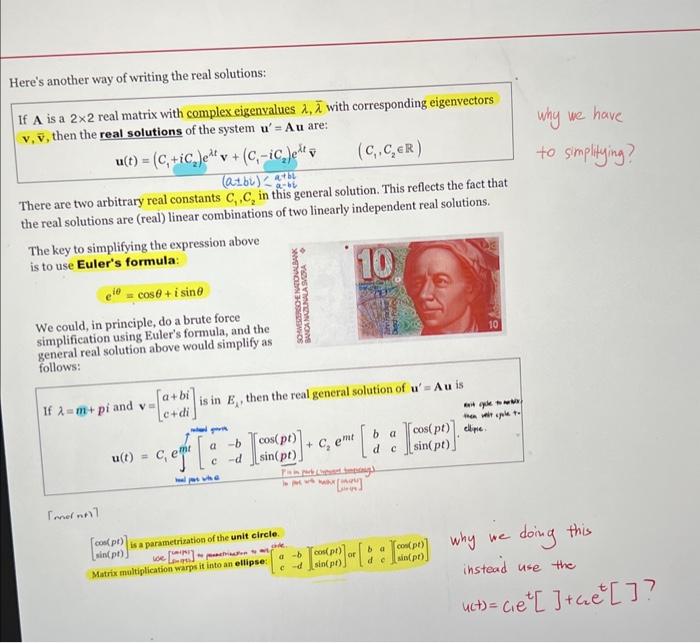 Here's another way of writing the real solutions:
If A is a 2×2 real matrix with complex eigenvalues λ, λ̄ with corresponding eigenvectors
v, v̄, then the real solutions of the system u' = Au are:
u(t) = (C₁+iC₂)e^{λt} v + (C₁-iC₂)e^{λ̄t} v̄ (C₁, C₂ ∈ ℝ)
(a±bi) < a+bi
a-bi
There are two arbitrary real constants C₁, C₂ in this general solution. This reflects the fact that
the real solutions are (real) linear combinations of two linearly independent real solutions.
why we have
to simplifying?
The key to simplifying the expression above
is to use Euler's formula:
e^{iθ} = cosθ + i sinθ
We could, in principle, do a brute force
simplification using Euler's formula, and the
general real solution above would simplify as
follows:
SCHWEIZERISCHE NATIONALBANK
BANCA NAZIUNALA SVIZRA
10
10
If λ = m + pi and v = [a+bi
c+di] is in E_λ, then the real general solution of u' = Au is
u(t) = C₁ e^{mt} [a -b
c -d] [cos(pt)
sin(pt)] + C₂ e^{mt} [b a
d c] [cos(pt)
sin(pt)].
[cos(pt)
sin(pt)] is a parametrization of the unit circle.
Matrix multiplication warps it into an ellipse: [a -b
c -d] [cos(pt)
sin(pt)] or [b a
d c] [cos(pt)
sin(pt)]
why we doing this
instead use the
u(t) = c₁e^t[ ]+c₂e^t[ ]?